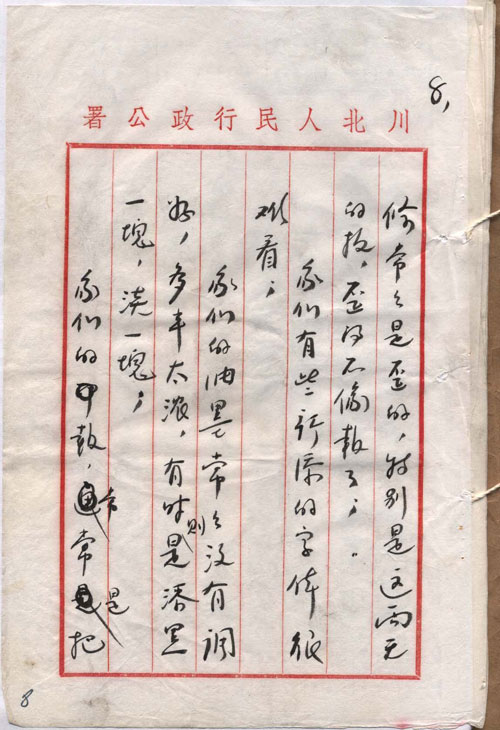 8,
川北人民行政公署
條常々是歪的，特别是这两天
的报，歪得不像报了；
我们有些的字体很
难看；
我们的油墨常々没有调
好，多半太浓，有时则是漆黑
一塊，淡一塊；
我们的報，常常是把
8